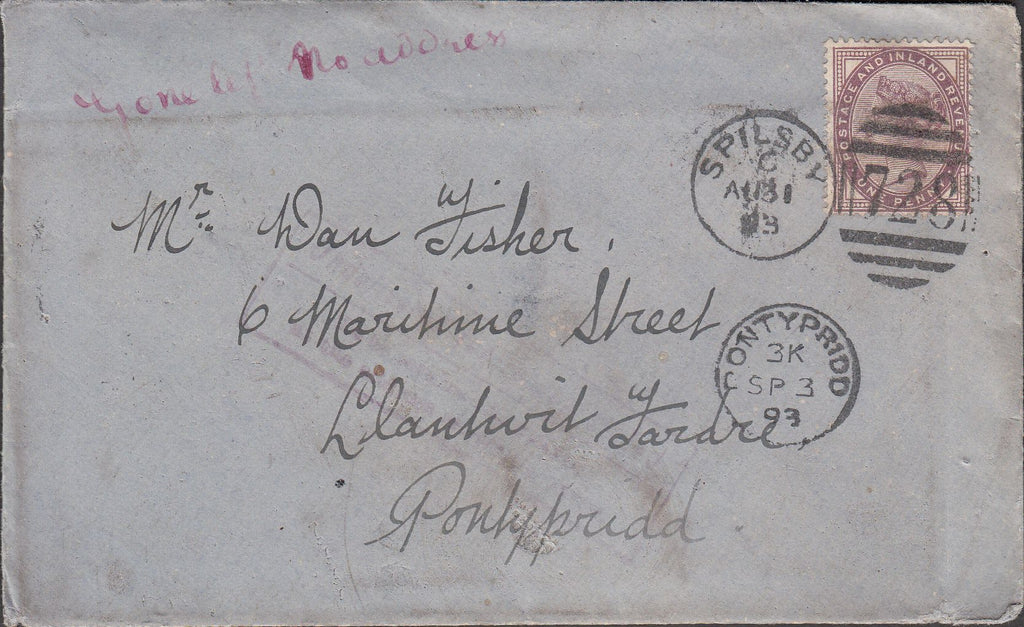 Gone No address
POSTAGE AND INLAND REVENUE
ONE PENNY
SPILSBY
C
AU 31
93
728
Mr. Dan Fisher,
6 Maritime Street
Llantwit Fardre,
Pontypridd.
PONTYPRIDD
3K
SP 3
93